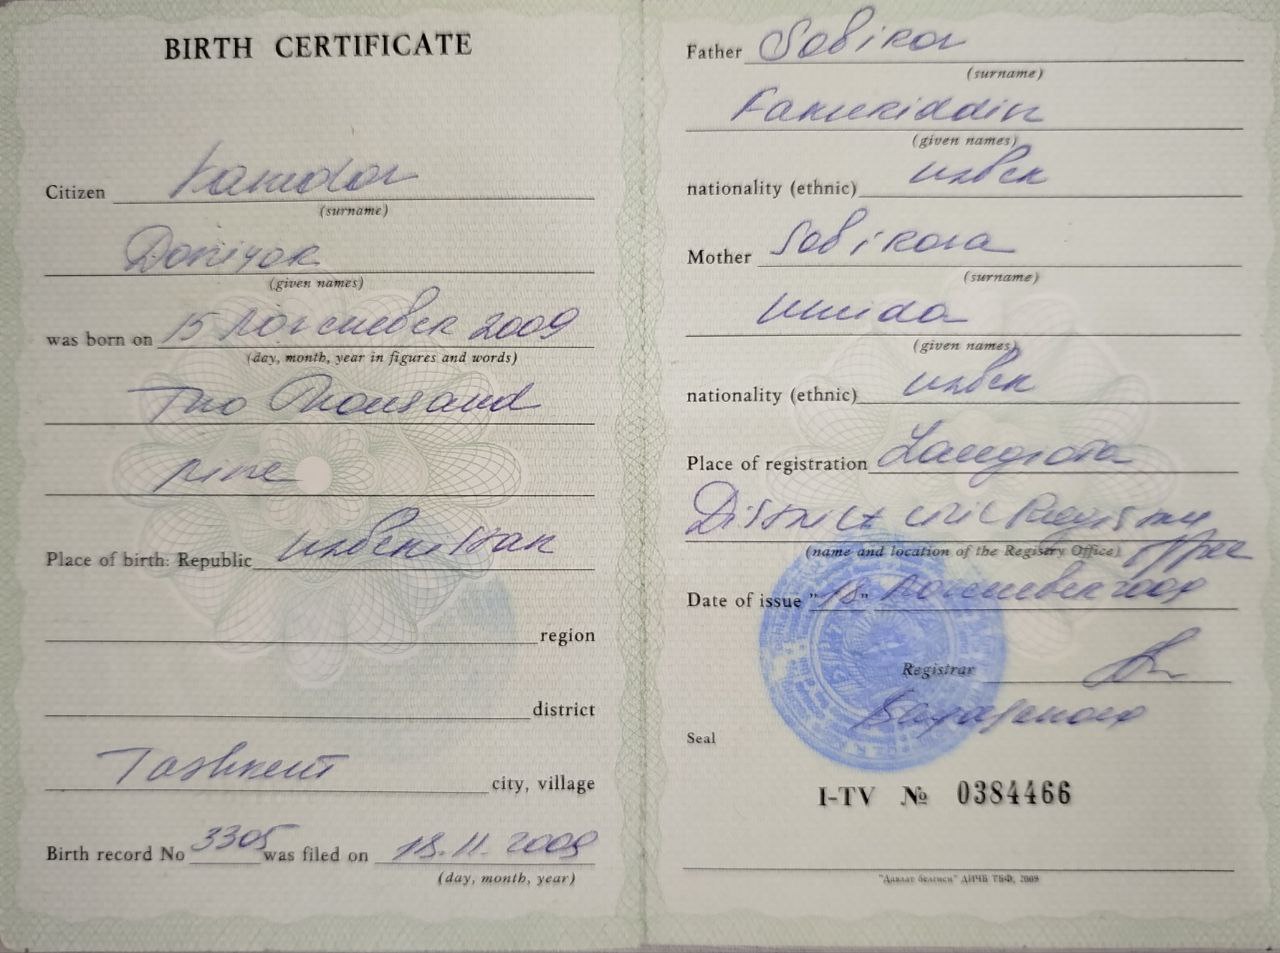 BIRTH CERTIFICATE
Citizen
(surname)
Doniyor
(given names)
was born on 15 November 2009
(day, month, year in figures and words)
Two Thousand
nine
Place of birth: Republic Uzbekistan
region
district
Tashkent city, village
Birth record No 3305 was filed on 18.11.2009
(day, month, year)
Father Sobirov
(surname)
(given names)
nationality (ethnic) uzbek
Mother Sobirova
(surname)
Umida
(given names)
nationality (ethnic) uzbek
Place of registration Zangiota
District civil Registry
(name and location of the Registry Office) office
Date of issue "18" November 2009
Registrar
Seal
I-TV № 0384466
"Давлат белгиси" ДИЧБ ТБФ, 2009